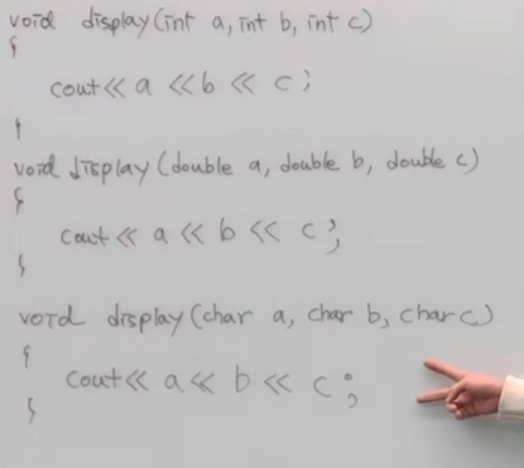 void display(int a, int b, int c)
{
cout<< a <<b << c;
}
void display (double a, double b, double c)
{
cout<< a << b << c;
}
void display (char a, char b, char c)
{
cout<< a << b << c;
}